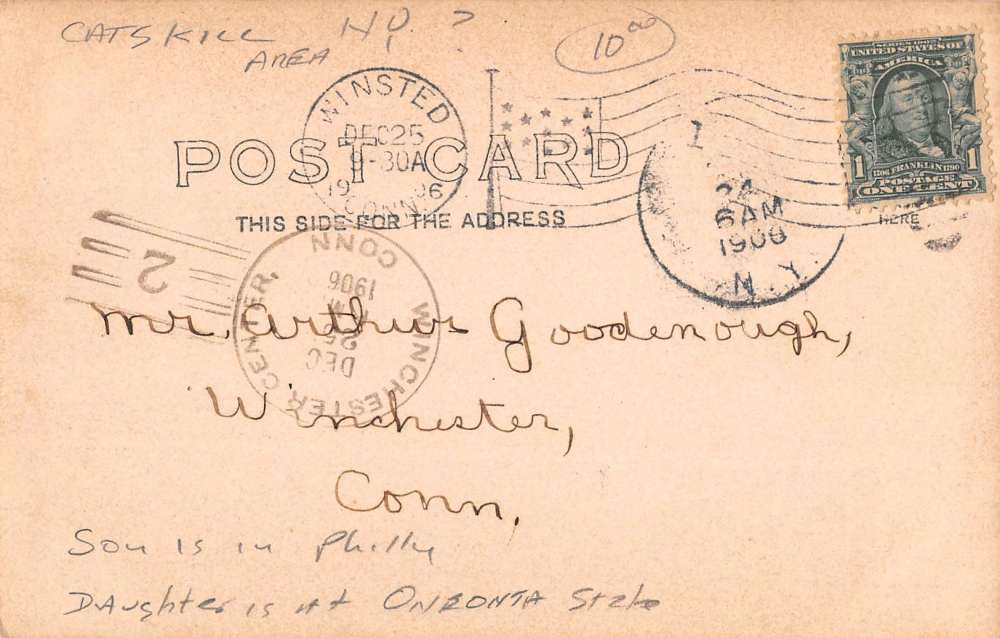 CATSKILL NY ?
AREA
10⁰⁰
WINSTED
DEC 25
9-30A
1906
CONN.
POST CARD
THIS SIDE FOR THE ADDRESS
SERIES 1902
UNITED STATES OF
AMERICA
1706 FRANKLIN 1790
POSTAGE
1 ONE CENT 1
HERE
24
6 AM
1906
N.Y.
2
WINCHESTER CENTER,
CONN
DEC
25
1906
Mr. Arthur Goodenough,
Winchester,
Conn.
Son is in Philly
Daughter is at ONEONTA State